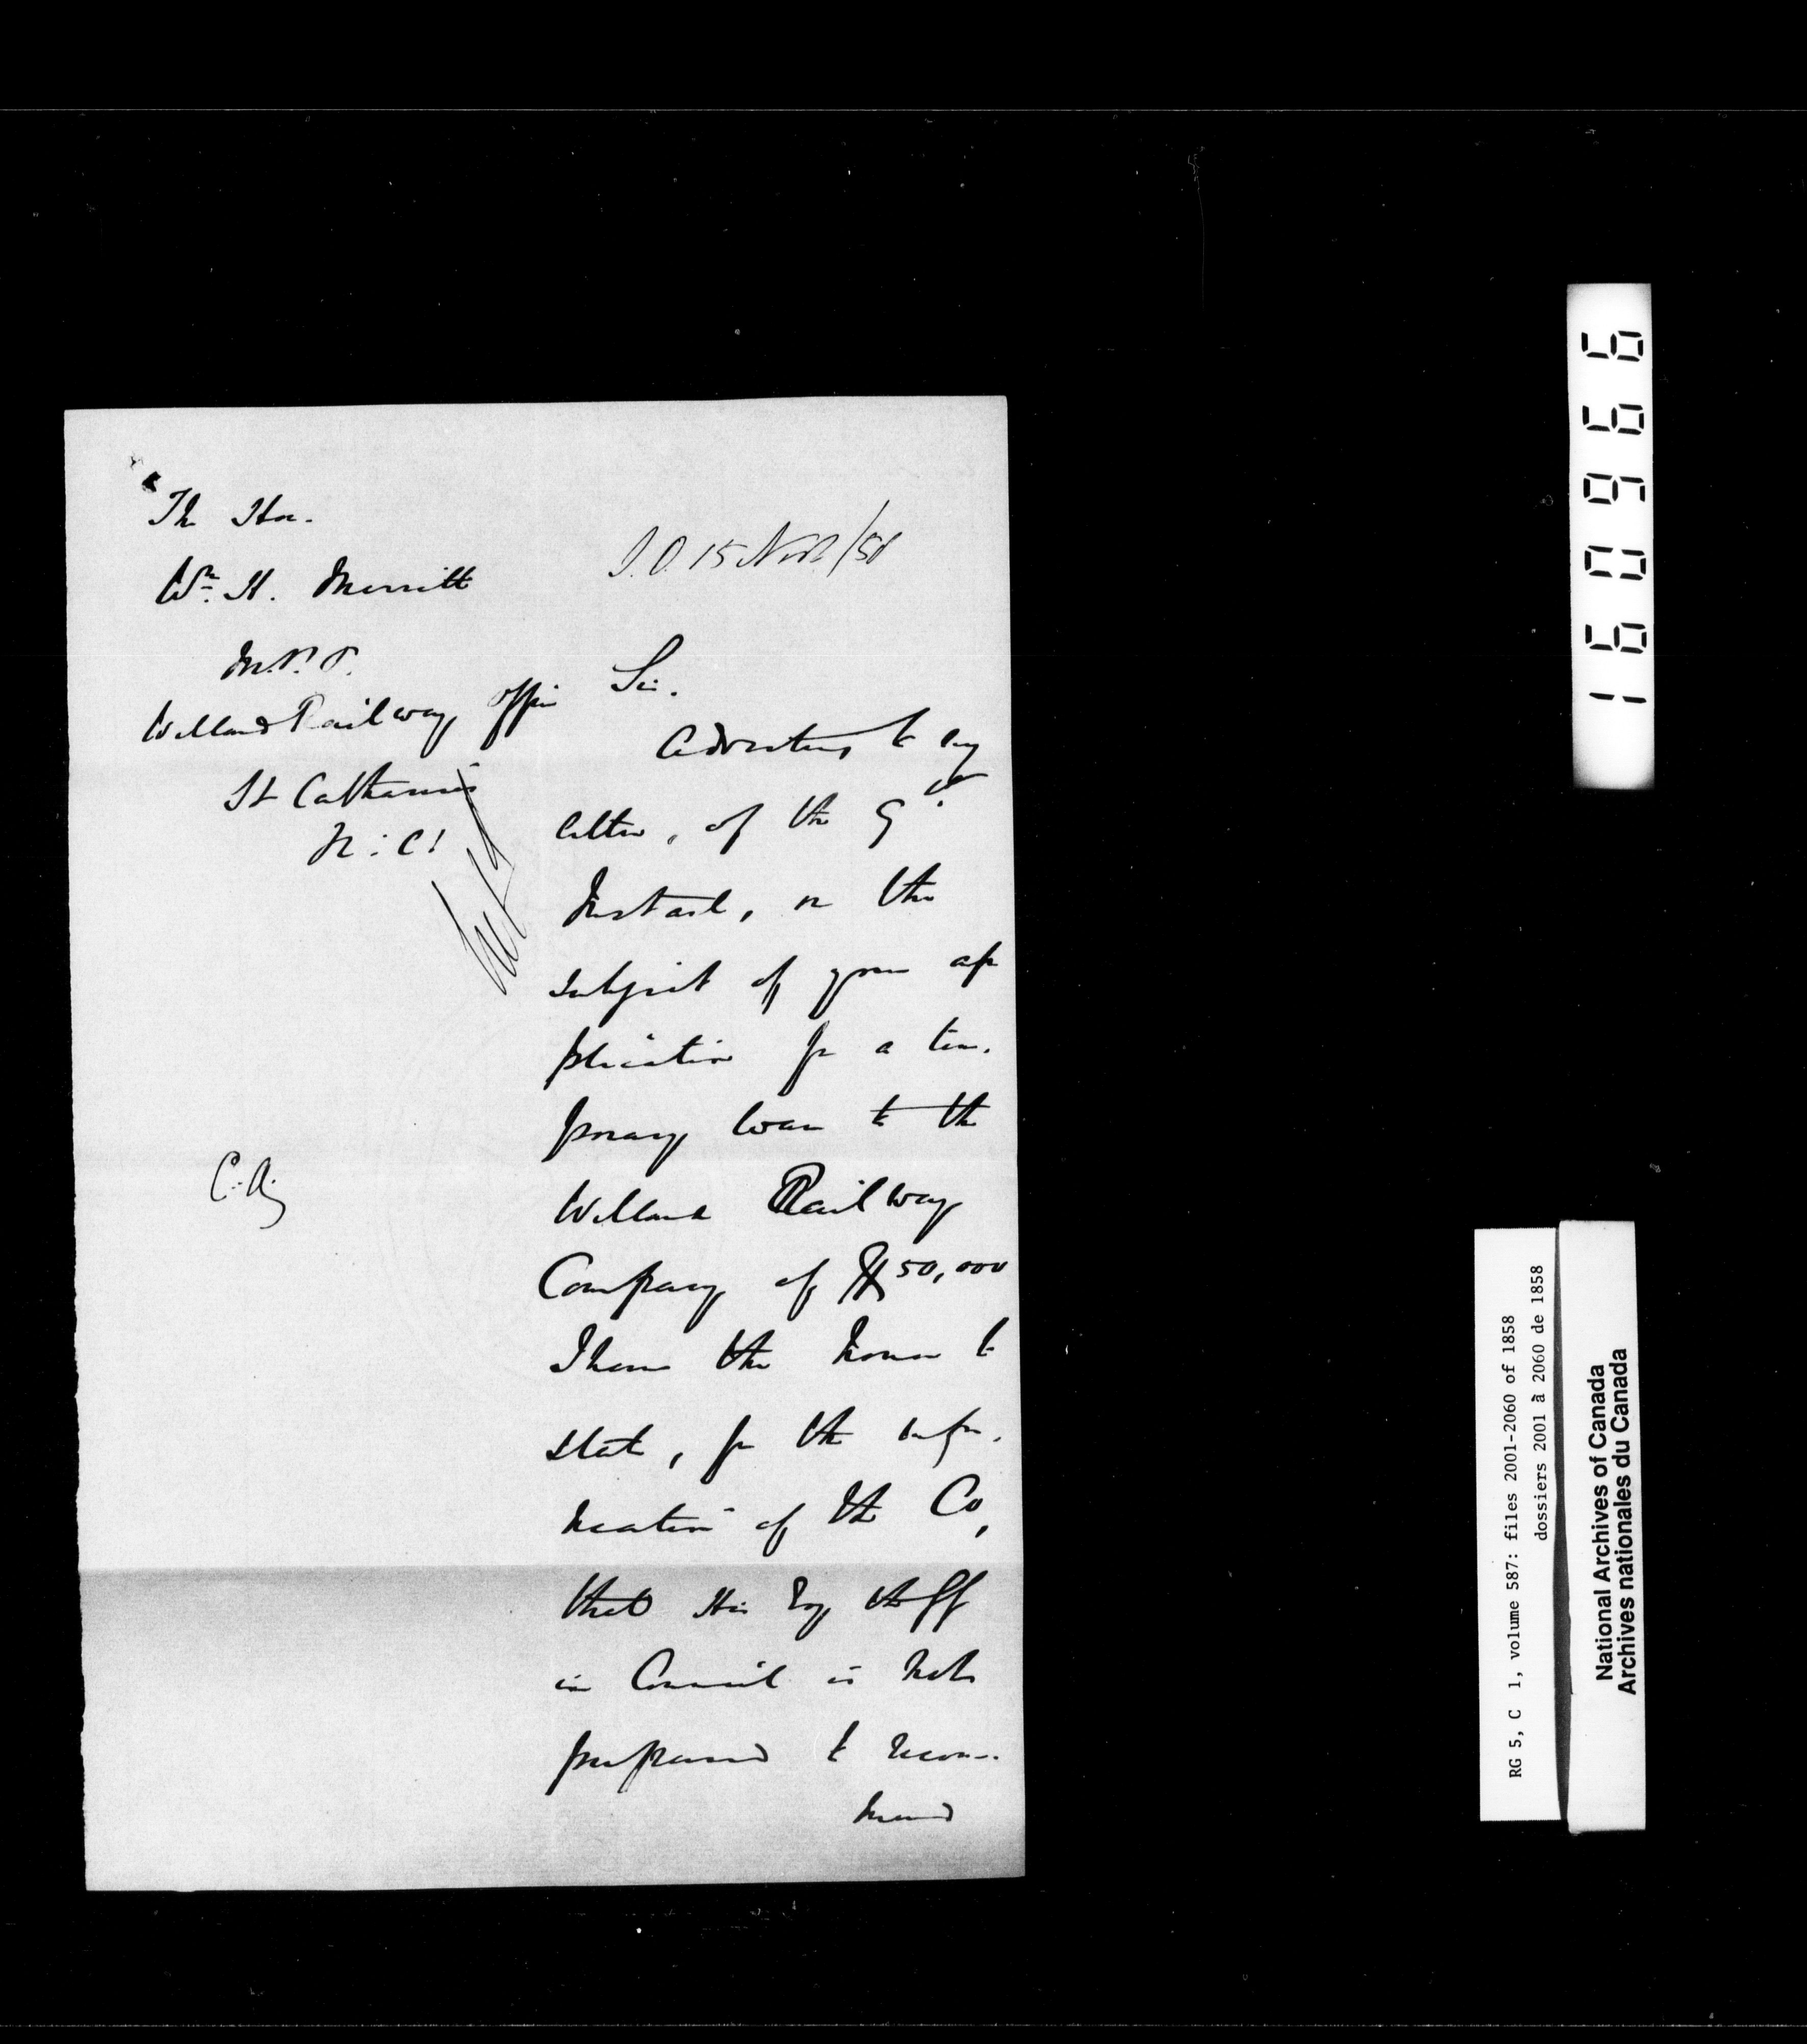 The Hon.
Wm H. Merritt
M.P.P.
Welland Railway Office
St Catharines
C.A.
S.O. 15 Nov./58
Sir.
Adverting to my
letter, of the 9th
Instant, on the
subject of your ap
plication for a tem.
porary loan to the
Welland Railway
Company of $50,000
I have the honor to
state, for the infor.
mation of the Co,
that His Exy the
in Council is not
prepared to recom-
mend
160966
RG 5, C 1, volume 587: files 2001-2060 of 1858
dossiers 2001 à 2060 de 1858
National Archives of Canada
Archives nationales du Canada